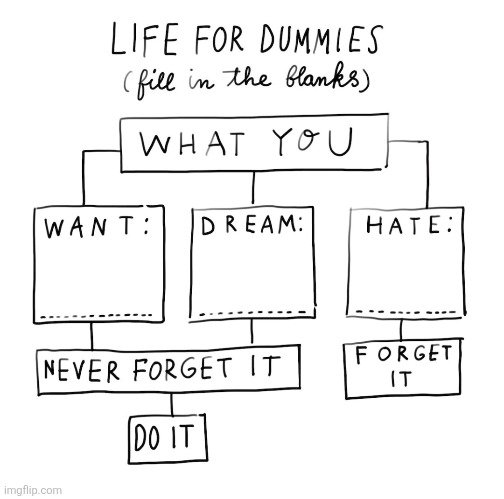 LIFE FOR DUMMIES
(fill in the blanks)
WHAT YOU
WANT:
DREAM:
HATE:
NEVER FORGET IT
FORGET
IT
DO IT
imgflip.com